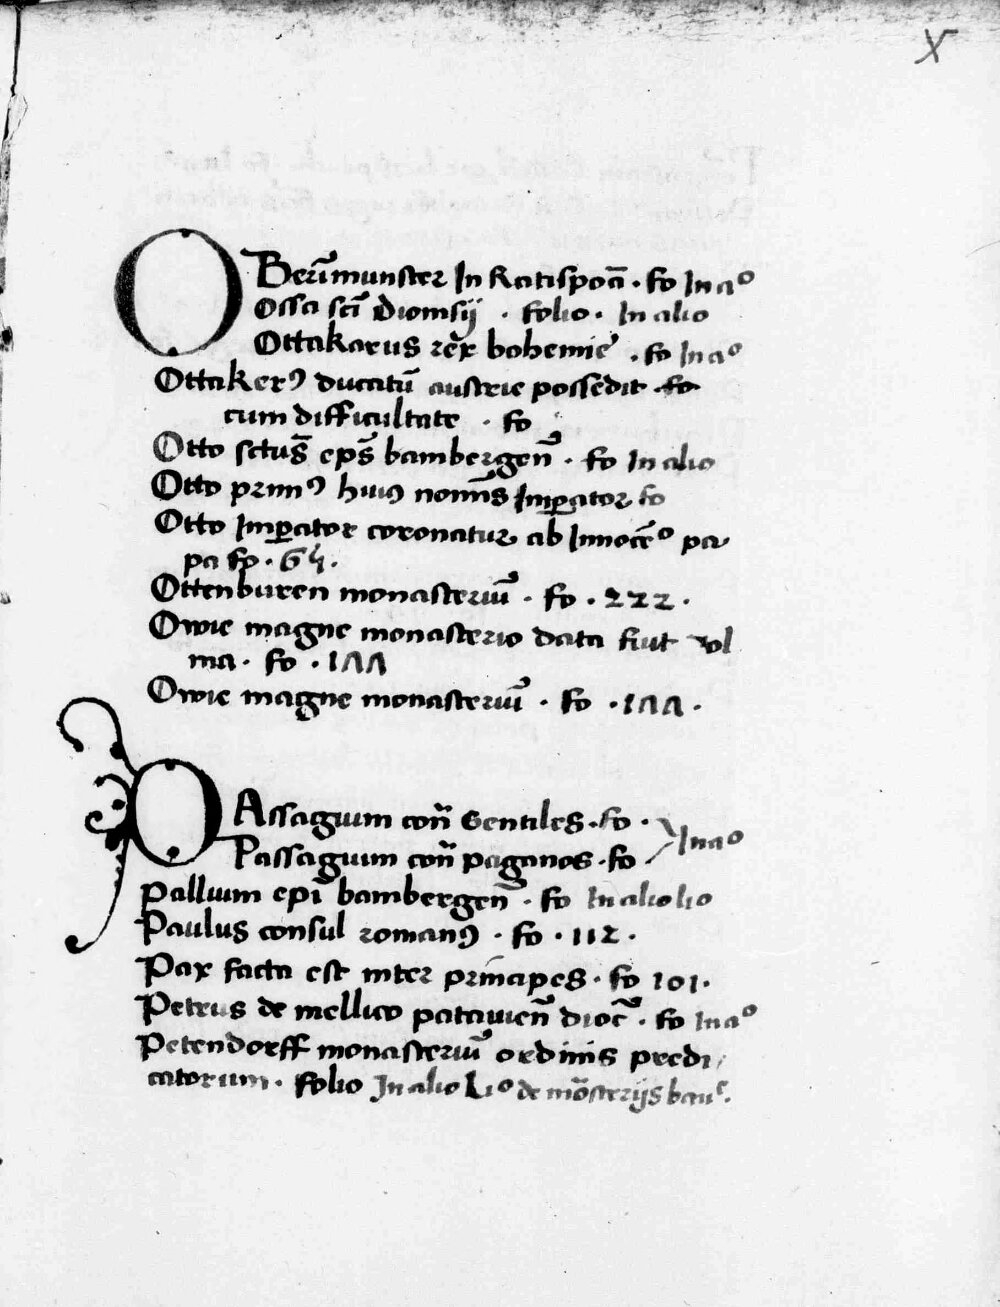 X
OBerm̄munster In Ratispoā · fo In aᵒ
Ossa scī Dionisij · folio · In alio
Ottakarus rex bohemie · fo In aᵒ
Ottakerꝰ ducatū austrie possedit · fo
cum difficultate · fo
Otto sctus̄ eps̄ bambergen̄ · fo In alio
Otto primꝰ huiꝰ nomīs Imꝑator fo
Otto Imꝑator coronatur ab Innocēᵒ pa
pa fo · 64 ·
Ottenburen monasteriū · fo · 222 ·
Owie magne monasterio data fiut vol
ma · fo · 1ΛΛ
Owie magne monasteriū · fo · 1ΛΛ ·
PAssagium con̄ Gentiles · fo ·
Passagium con̄ paganos · fo In aᵒ
Pallium epī bambergen̄ · fo In alio lio
Paulus consul romanꝰ · fo · 112 ·
Pax facta est inter prīncipes · fo 101 ·
Petrus de mellico patauien̄ dioc̄ · fo In aᵒ
Petendorff monasteriū ordinis predi
catorum · folio In alio Liᵒ de mōsterijs bau